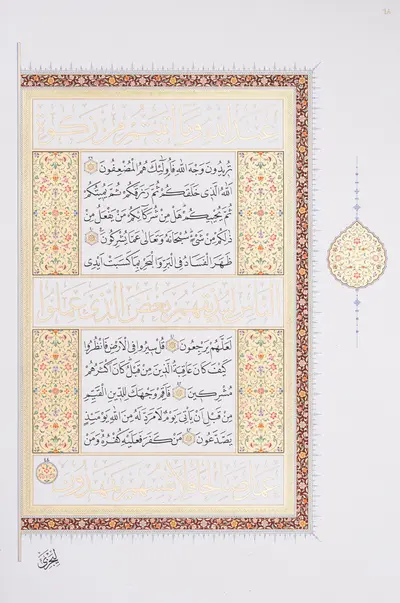 تُرِيدُونَ وَجْهَ اللّٰهِ فَأُولٰئِكَ هُمُ الْمُضْعِفُونَ
اَللّٰهُ الَّذِي خَلَقَكُمْ ثُمَّ رَزَقَكُمْ ثُمَّ يُمِيتُكُمْ
ثُمَّ يُحْيِيكُمْ هَلْ مِنْ شُرَكَائِكُمْ مَنْ يَفْعَلُ مِنْ
ذٰلِكُمْ مِنْ شَيْءٍ سُبْحَانَهُ وَتَعَالٰى عَمَّا يُشْرِكُونَ
ظَهَرَ الْفَسَادُ فِي الْبَرِّ وَالْبَحْرِ بِمَا كَسَبَتْ اَيْدِي
النَّاسِ لِيُذِيقَهُمْ بَعْضَ الَّذِي عَمِلُوا
لَعَلَّهُمْ يَرْجِعُونَ قُلْ سِيرُوا فِي الْاَرْضِ فَانْظُرُوا
كَيْفَ كَانَ عَاقِبَةُ الَّذِينَ مِنْ قَبْلُ كَانَ اَكْثَرُهُمْ
مُشْرِكِينَ فَاَقِمْ وَجْهَكَ لِلدِّينِ الْقَيِّمِ
مِنْ قَبْلِ اَنْ يَاْتِيَ يَوْمٌ لَا مَرَدَّ لَهُ مِنَ اللّٰهِ يَوْمَئِذٍ
يَصَّدَّعُونَ مَنْ كَفَرَ فَعَلَيْهِ كُفْرُهُ وَمَنْ
لِيَجْزِيَ